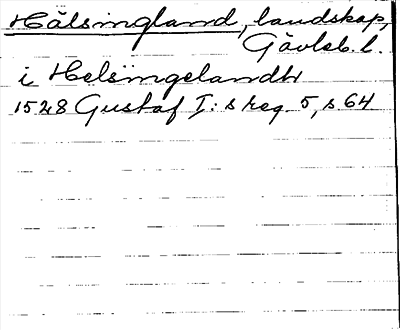 Hälsingland, landskap,
Gävleb. l.
i Helsingelandh
1528 Gustaf I:s reg. 5, s 64